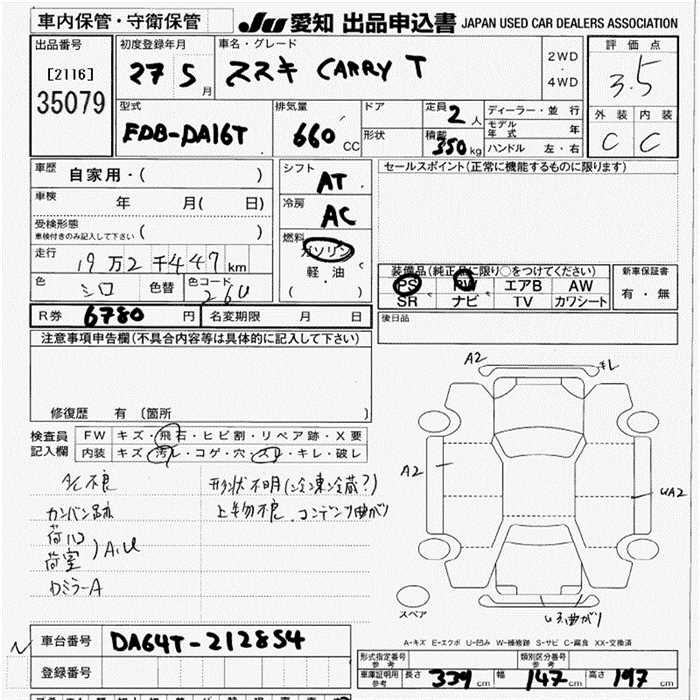 車内保管・守衛保管
JU 愛知 出品申込書 JAPAN USED CAR DEALERS ASSOCIATION
出品番号 初度登録年月 車名・グレード 評価点
[2116] 27 5 月 スズキ CARRY T 2WD ・ 4WD 3.5
35079
型式 排気量 ドア 定員 2 人 ディーラー・並 行 外装 内装
EDB-DA16T 660 CC 形状 積載 350 kg モデル年式 年 C C
ハンドル 左・右
車歴 自家用・( ) シフト AT セールスポイント(正常に機能するものに限ります)
車検 年 月( 日) 冷房 AC
受検形態 車検付きのみ記入して下さい ( ) 燃料 ガソリン
走行 19万2千447km 軽 油 装備品(純正品に限り○をつけてください) 新車保証書
色 シロ 色替 色コード 26U ( ・ ) PS PW エアB AW 有・無
SR ナビ TV カワシート
R券 6780 円 名変期限 月 日 後日品
注意事項申告欄(不具合内容等は具体的に記入して下さい)
A2 キレ
修復歴 有 〔箇所 〕
検査員 FW キズ・飛石・ヒビ割・リペア跡・X要
記入欄 内装 キズ・汚レ・コゲ・穴・スレ・キレ・破レ
A/C不良 形状不明(冷凍冷蔵?) A2
カンバン跡 上物不良 コンデンサ曲がり UA2
荷口
荷室 )A.U
ロミラーA
スペア
曲がり
車台番号 DA64T-212854 A-キズ E-エクボ U-凹み W-補修跡 S-サビ C-腐食 XX-交換済
登録番号 形式指定番号 参考 類別区分番号 参考
車庫証明用 参考 長さ 339 cm 幅 147 cm 高さ 197 cm